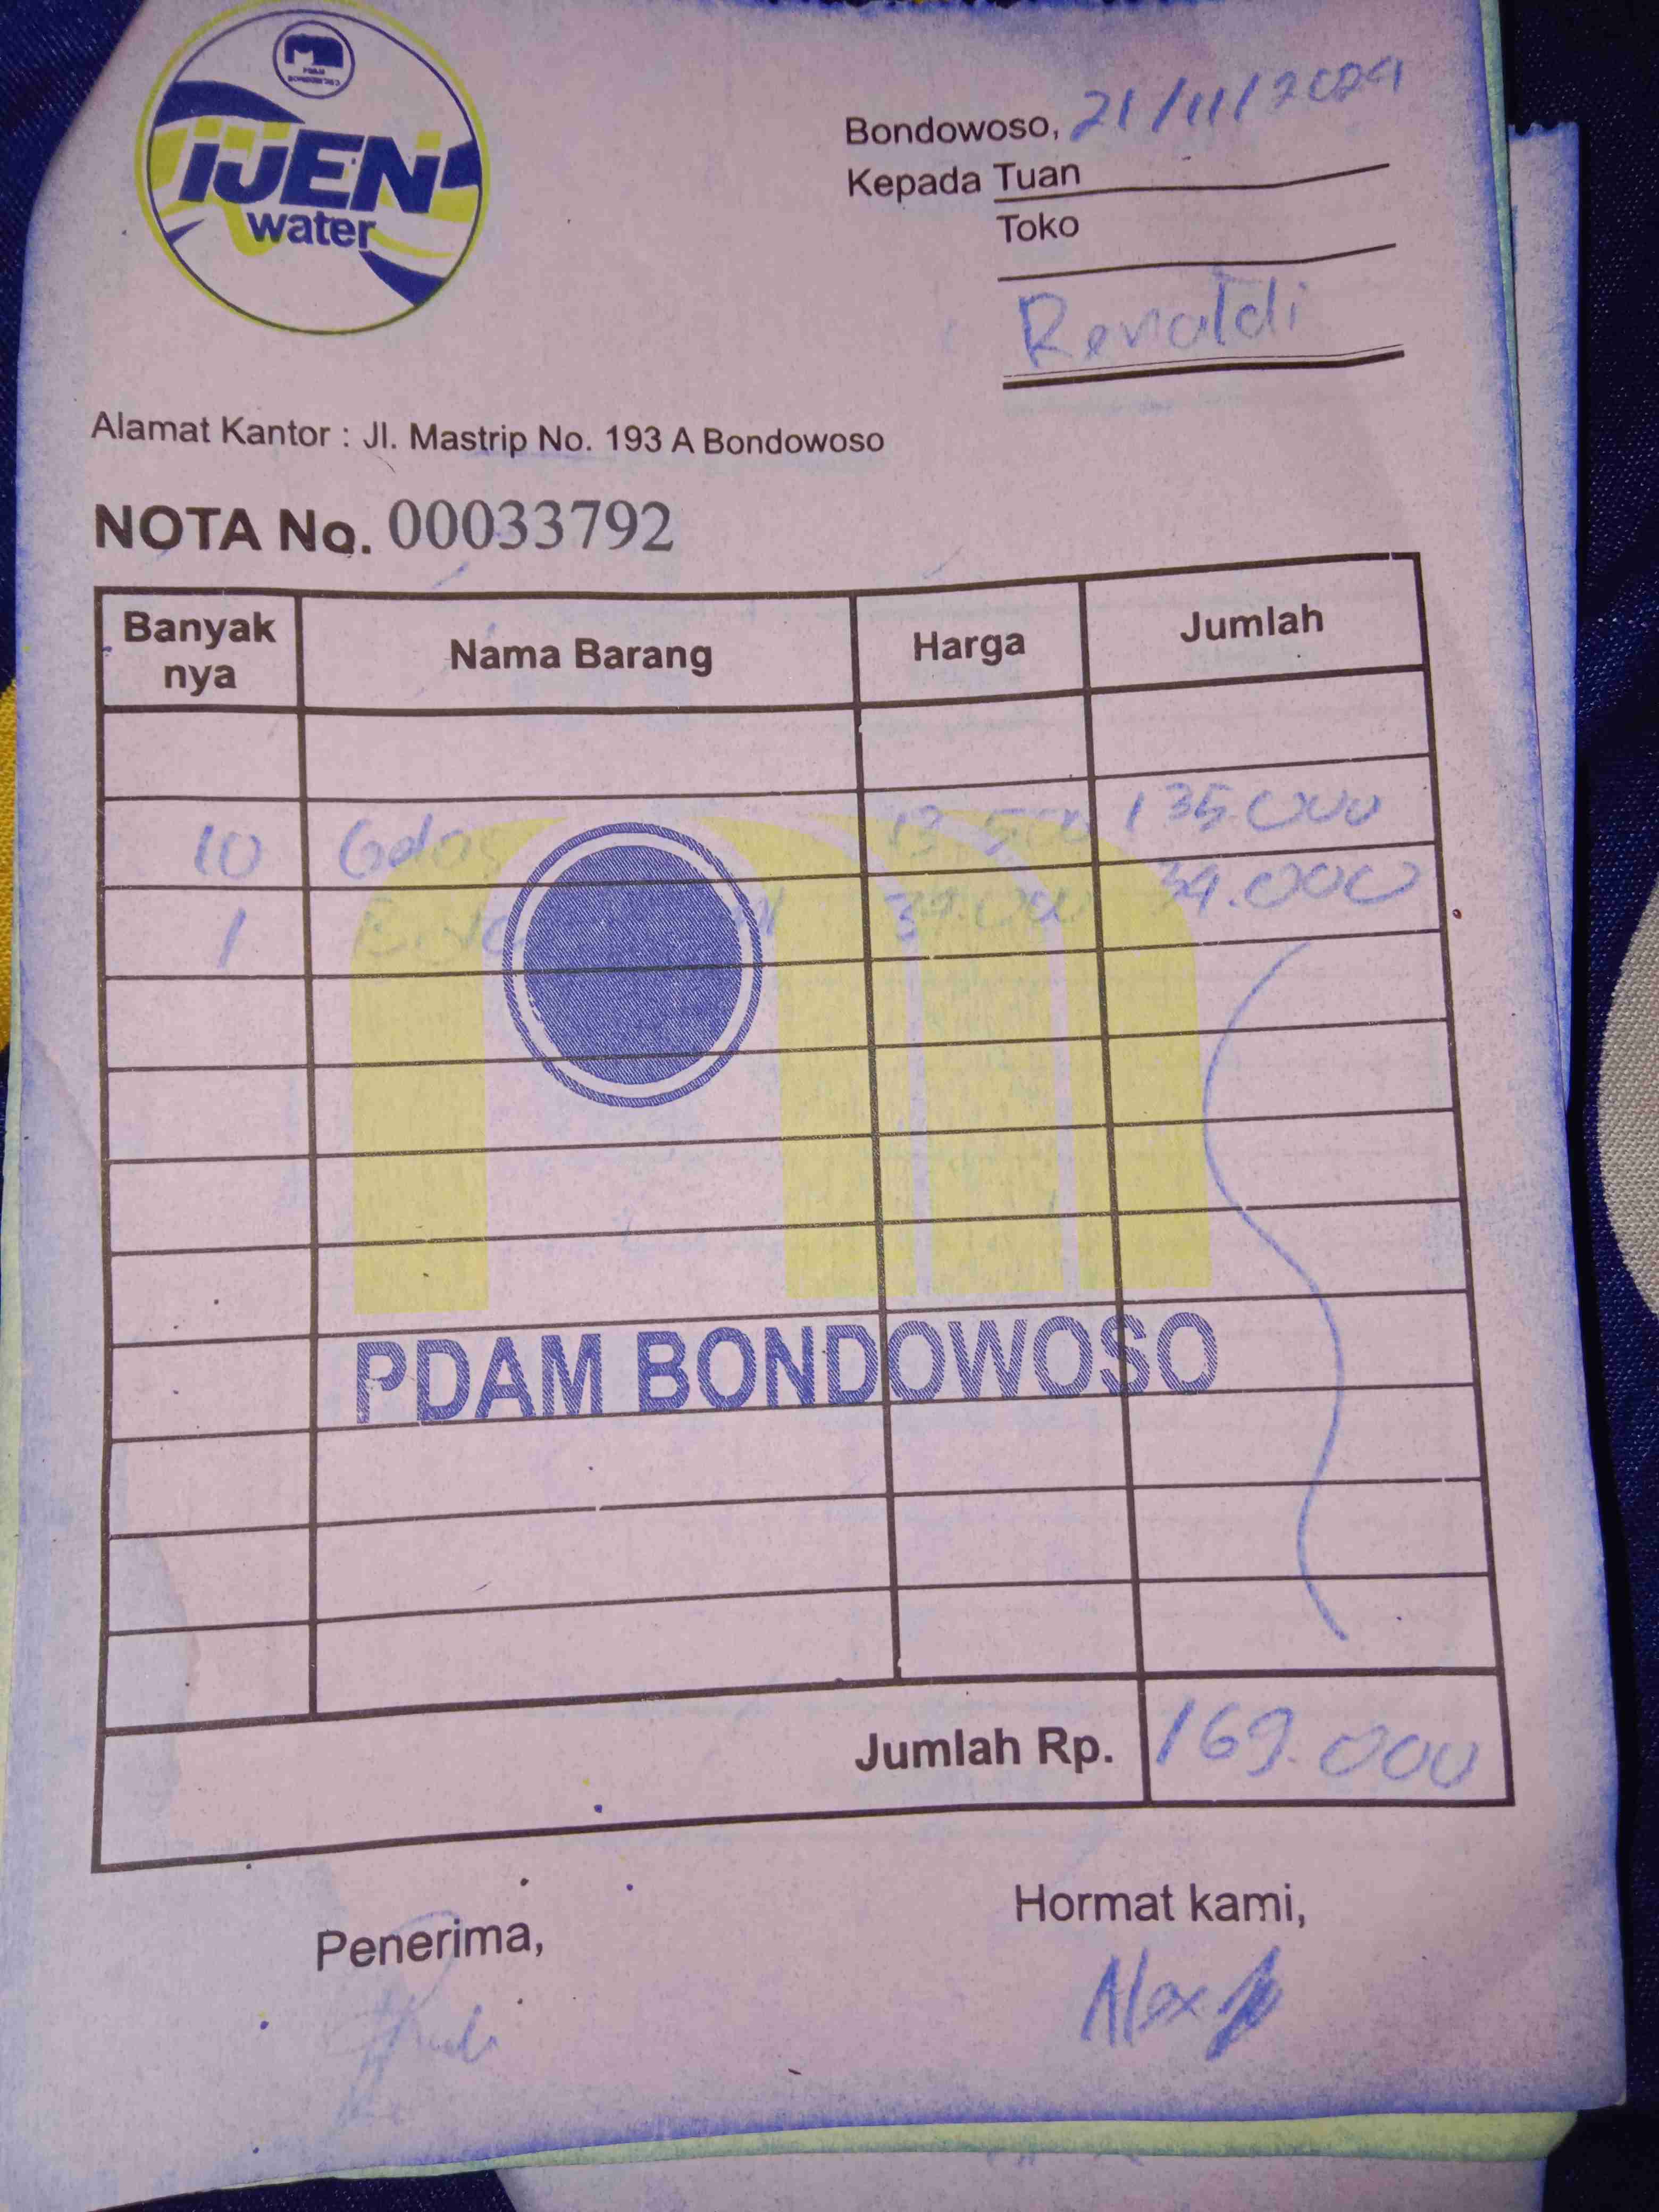 IJEN
water
Bondowoso, 21/11/2024
Kepada Tuan
Toko
Renaldi
Alamat Kantor : Jl. Mastrip No. 193 A Bondowoso
NOTA No. 00033792
Banyak nya Nama Barang Harga Jumlah
10 Gelas 13.500 135.000
1 34.000 34.000
PDAM BONDOWOSO
Jumlah Rp. 169.000
Penerima, Hormat kami,
Alex